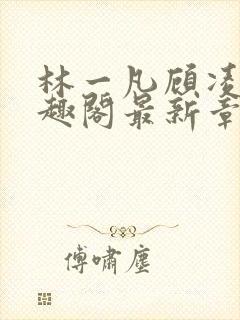 林一凡顾凌
趣阁最新章
傅啸尘